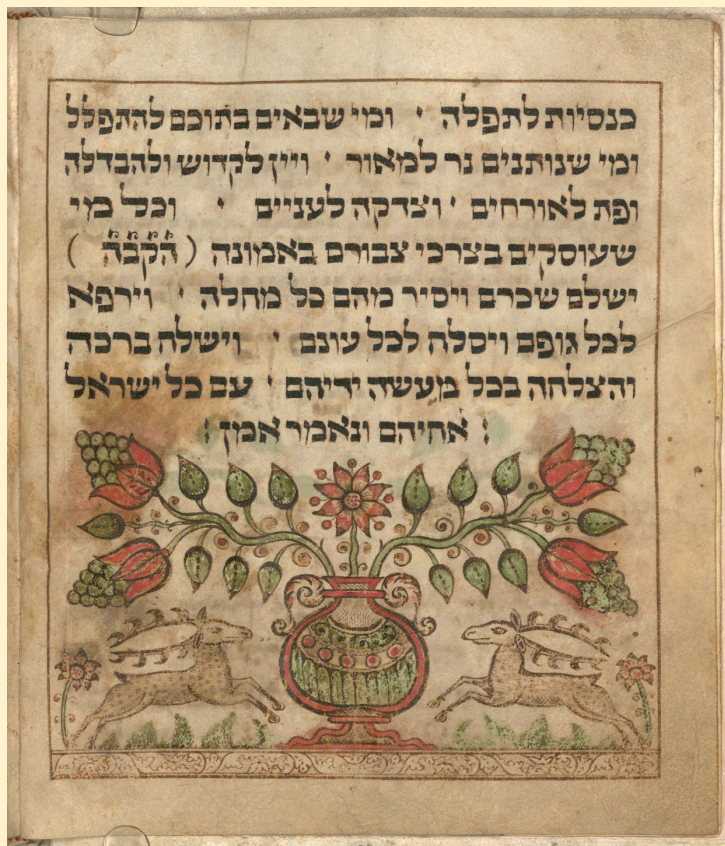 כנסיות לתפלה ׳ ומי שבאים בתוכם להתפלל
ומי שנותנים נר למאור ׳ ויין לקדוש ולהבדלה
ופת לאורחים ׳ וצדקה לעניים ׳ וכל מי
שעוסקים בצרכי צבורם באמונה (הקבה)
ישלם שכרם ויסיר מהם כל מחלה ׳ וירפא
לכל גופם ויסלח לכל עונם ׳ וישלח ברכה
והצלחה בכל מעשה ידיהם ׳ עם כל ישראל
: אחיהם ונאמר אמן :